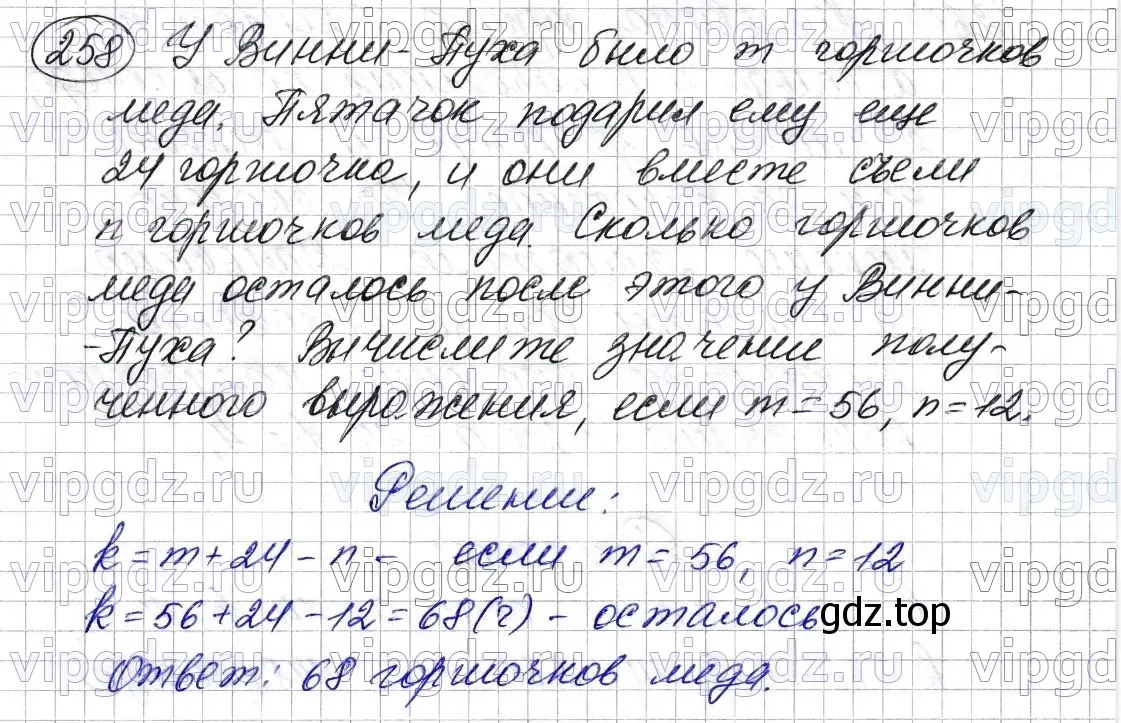 258 У Винни-Пуха было m горшочков
меда. Пятачок подарил ему еще
24 горшочка, и они вместе съели
n горшочков меда. Сколько горшочков
меда осталось после этого у Винни-
-Пуха? Вычислите значение полу-
ченного выражения, если m = 56, n = 12.
Решение:
k = m + 24 - n - если m = 56, n = 12
k = 56 + 24 - 12 = 68 (г) - осталось
gdz.top
Ответ: 68 горшочков меда.
vipgdz.ru